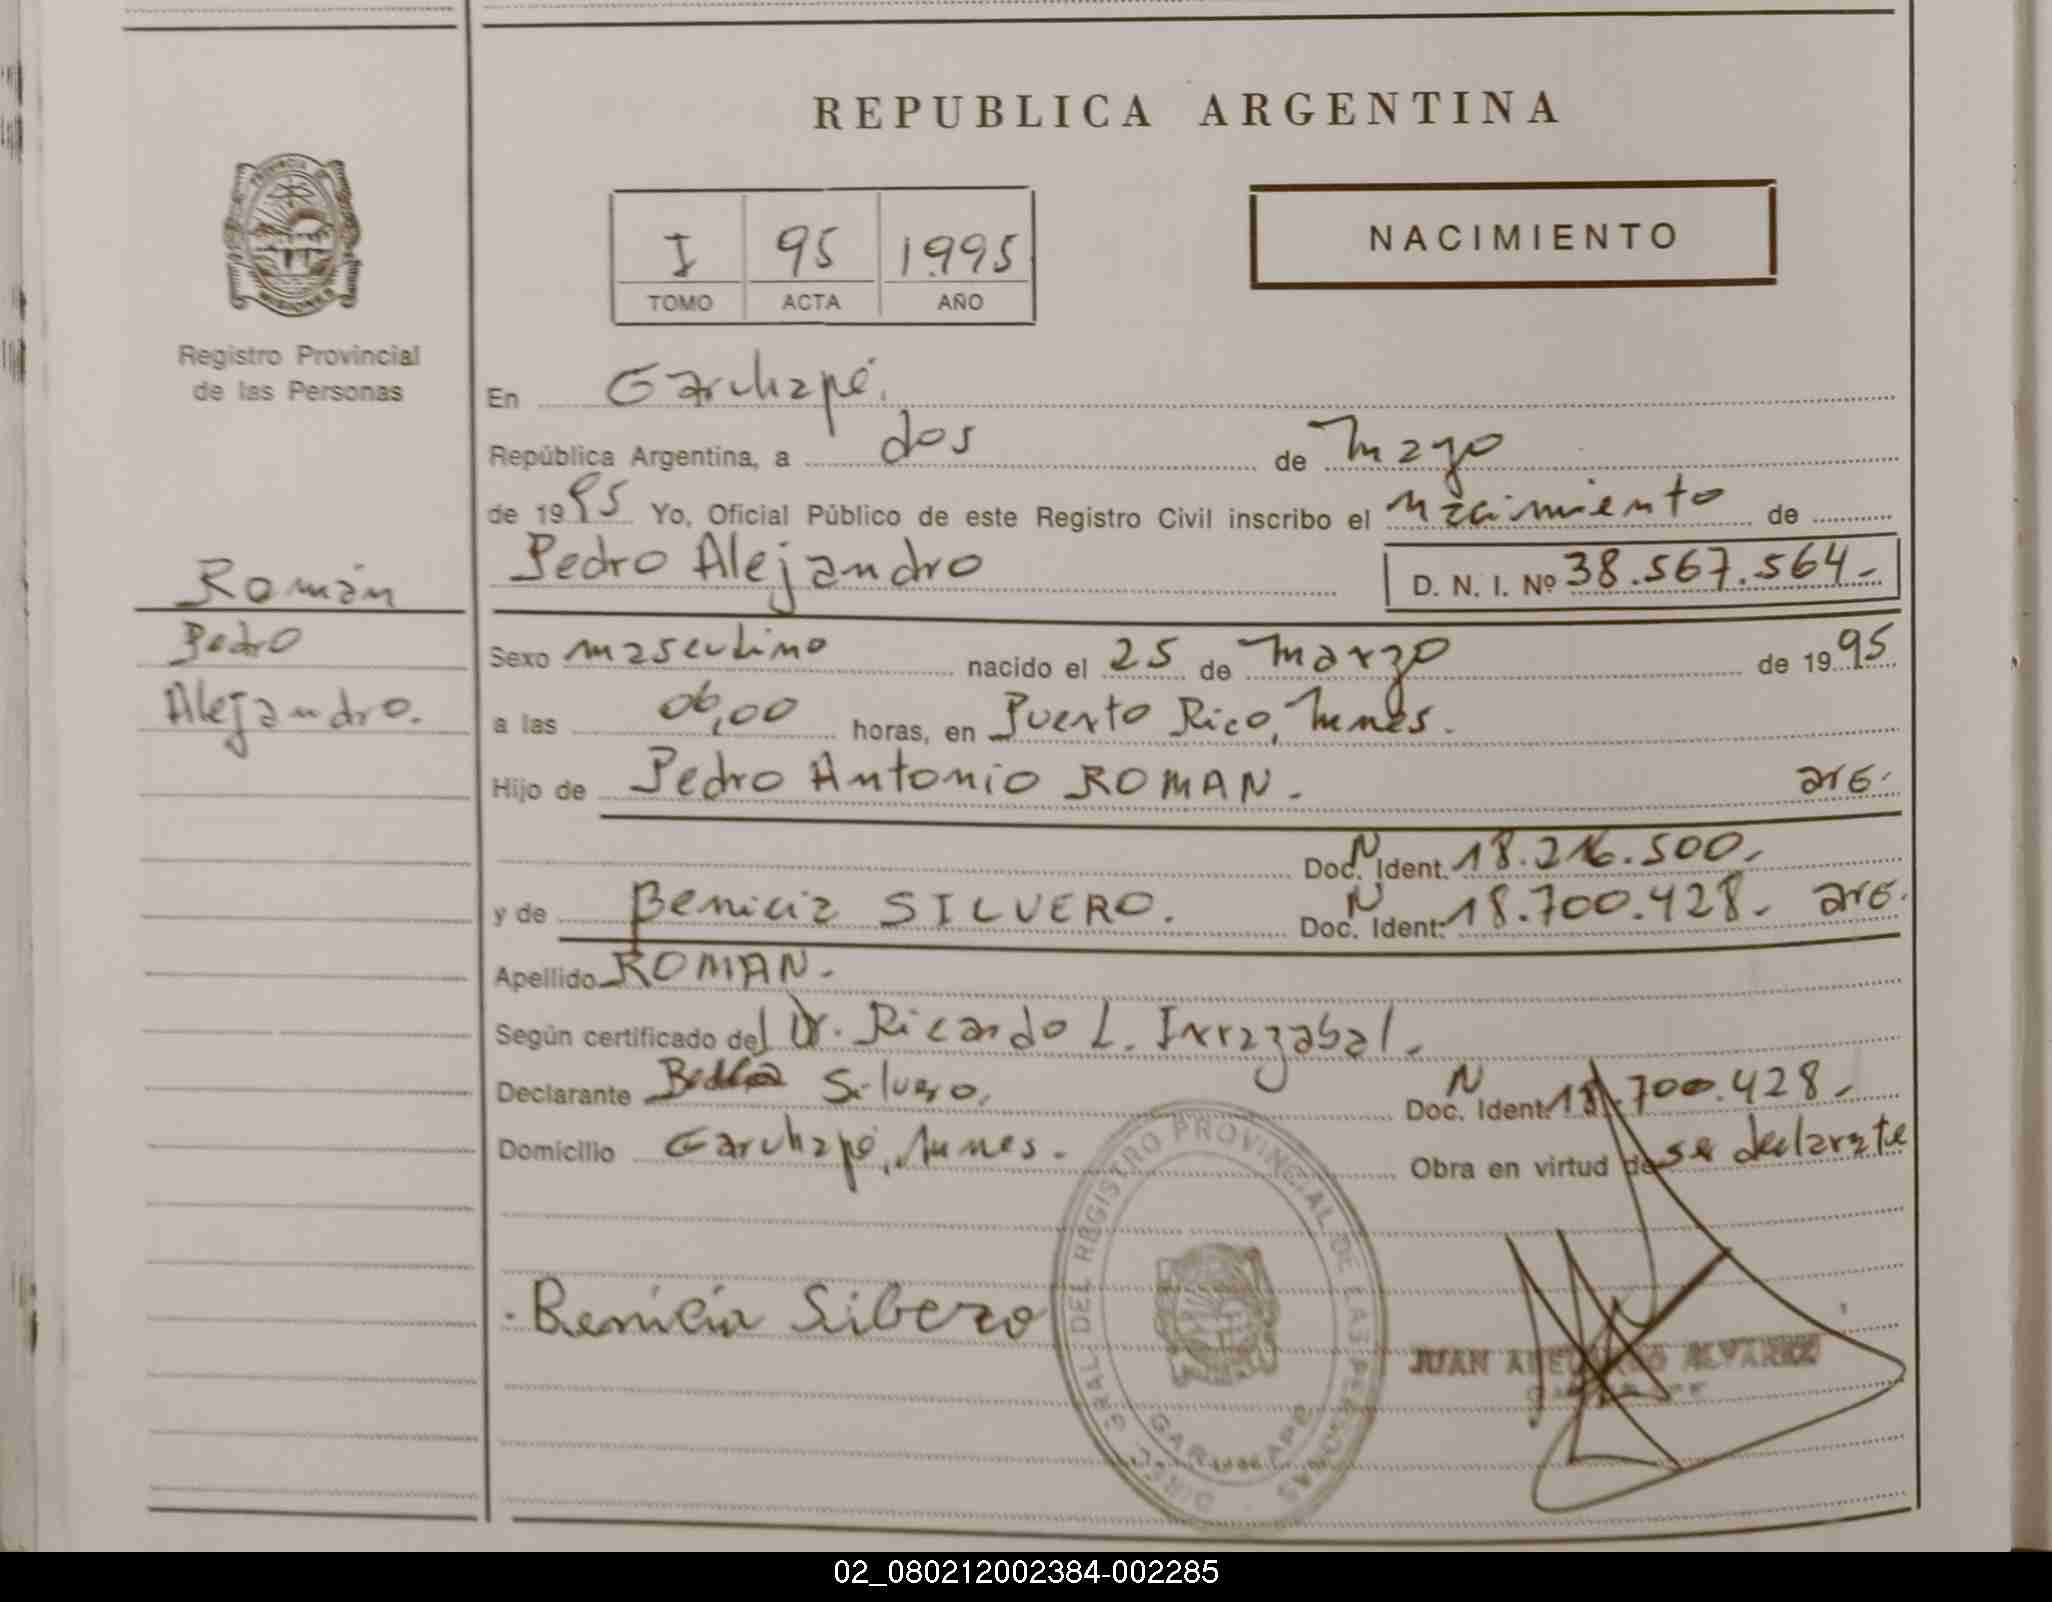 REPUBLICA ARGENTINA
I 95 1.995
TOMO ACTA AÑO
NACIMIENTO
Registro Provincial
de las Personas
En Garuhapé.
República Argentina, a dos de mayo
de 1995 Yo, Oficial Público de este Registro Civil inscribo el nacimiento de
Pedro Alejandro D. N. I. Nº 38.567.564.-
Román
Pedro
Alejandro.
Sexo masculino nacido el 25 de marzo de 1995
a las 06,00 horas, en Puerto Rico, Mnes.
Hijo de Pedro Antonio ROMAN.- arg.
Doc. N Ident. 18.216.500.-
y de Benicia SILVERO. Doc. N Ident. 18.700.428.- arg.
Apellido ROMAN.-
Según certificado del Dr. Ricardo L. Irrazabal.-
Declarante Silvero. Doc. N Ident. 18.700.428.-
Domicilio Garuhapé, Mnes.- Obra en virtud de ser declarate
DIREC. GRAL. DEL REGISTRO PROVINCIAL DE LAS PERSONAS
GARUHAPE
Benicia Sibero
JUAN ALVAREZ
02_080212002384-002285